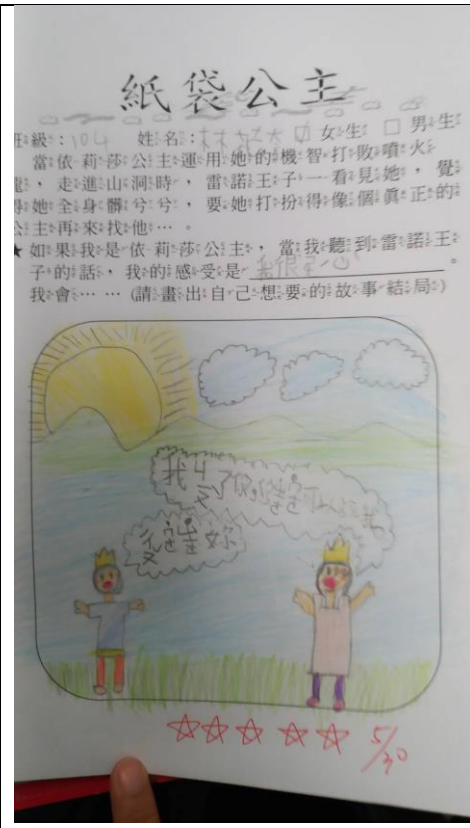 紙袋公主
班級：104 姓名：林 女生 □ 男生
當依莉莎公主運用她的機智打敗噴火
龍，走進山洞時，雷諾王子一看見她，覺
得她全身髒兮兮，要她打扮得像個真正的
公主再來找他…。
★如果我是依莉莎公主，當我聽到雷諾王
子的話，我的感受是 我很 心。
我會……(請畫出自己想要的故事結局)
我 了你
妳
5/30